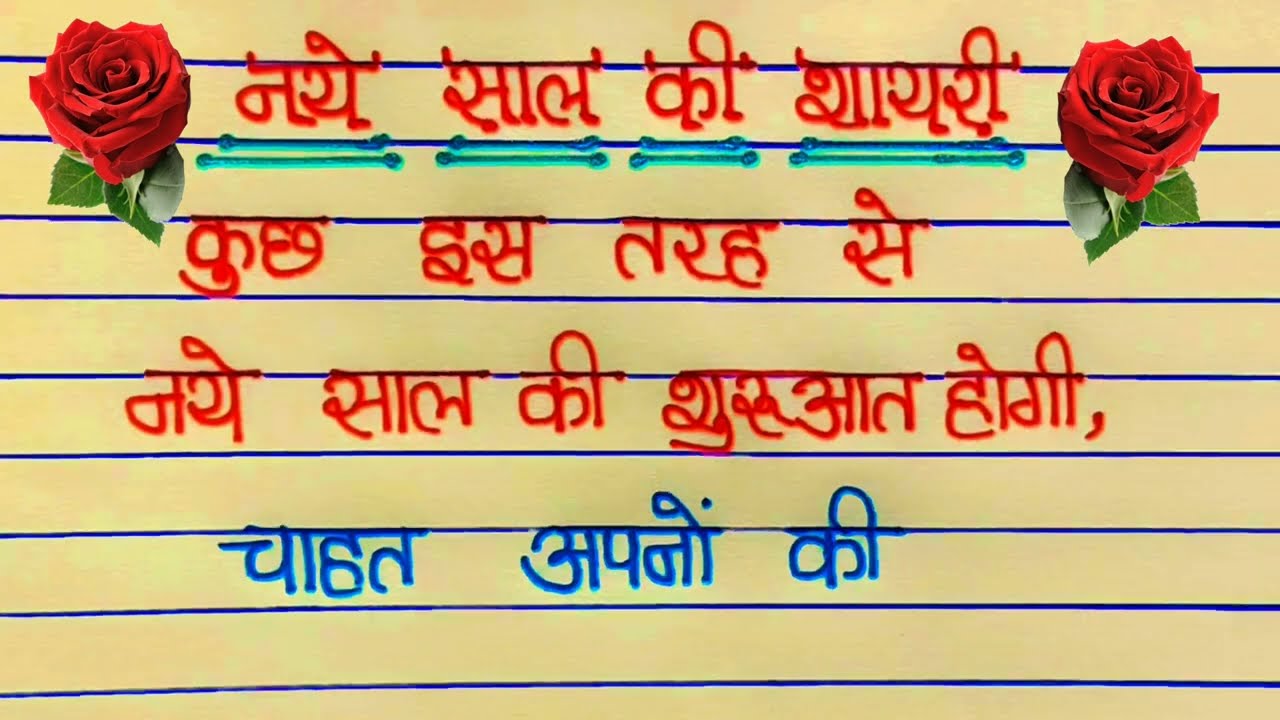 नये साल की शायरी
कुछ इस तरह से
नये साल की शुरूआत होगी,
चाहत अपनों की